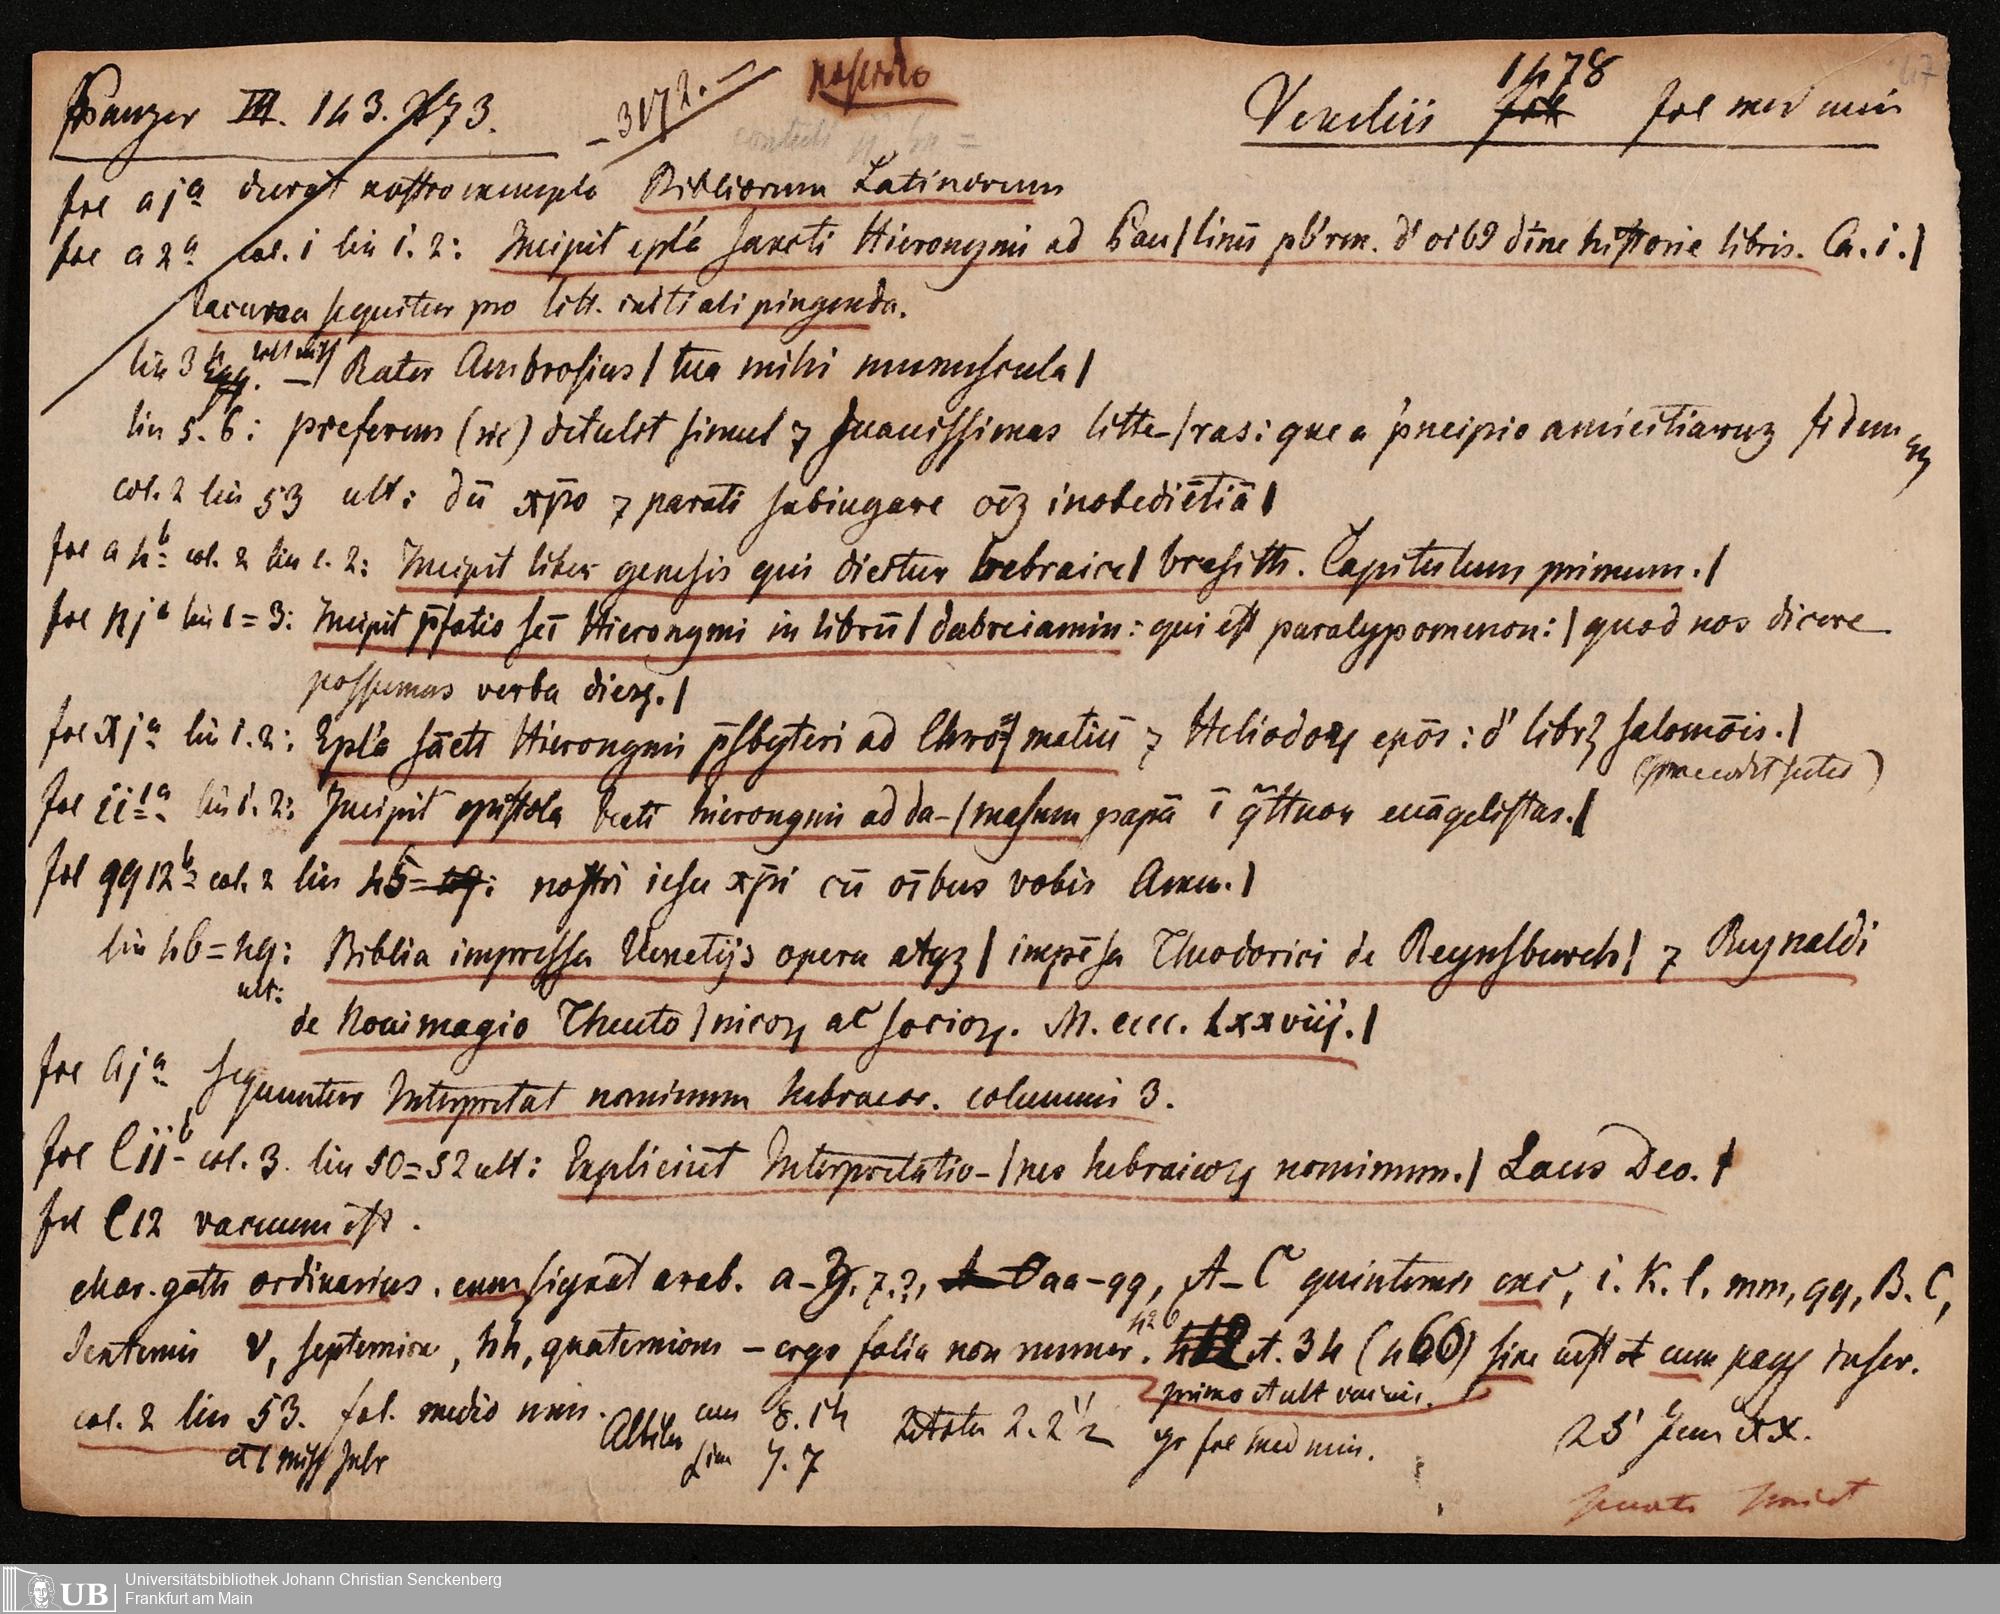 Panzer III. 143. 273. 3172. Venetiis 1478 fol med min
fol a j a deest nostro exemplo Bibliorum Latinorum
fol a 2 a col. i lin i. 2: Incipit epl'a sancti Hieronymi ad Pau/linū pb'rm. d' oi69 dīne historie libris. Ca. i./
lacuna sequitur pro litt. initiali pingenda.
lin 3 Rater Ambrosius / tua mihi munuscula /
lin 5. 6: preferens (sic) detulit simul 7 suauissimas litte-/ras: que a p̄ncipio amicitiaruz fidem
col. 2 lin 53 ult: dū xp̄o 7 parati subiugare oēz inobediētiā/
fol a 4 b col. 2 lin i. 2: Incipit liber genesis qui dicitur hebraice/ bresith. Capitulum primum./
fol n j a lin 1=3: Incipit p̄fatio sc̄i Hieronymi in librū / dabreiamin: qui est paralypomenon: / quod nos dicere
possumus verba dierꝝ./
fol x j a lin i. 2: Epl'a sācti Hieronymi p̄sbyteri ad Chro=/matiū 7 Heliodorꝝ epōs: d' librꝫ salomōis./
fol ii a lin i. 2: Incipit epistola beati hieronymi ad da-/masum papā ī q̄ttuor euāgelistas./
fol qq 12 b col. 2 lin 45 nostri iesu xp̄i cū oībus vobis Amen./
lin 46=49: Biblia impressa Venetijs opera atqz / impēsa Theodorici de Reynsburch/ 7 Reynaldi
ult:
de Nouimagio Theuto/nicoꝝ ac socioꝝ. M. cccc. Lxxviij./
fol A j a sequuntur Interpretat nominum hebraeor. columnis 3.
fol C ii b col. 3. lin 50=52 ult: Expliciūt Interpretatio-/nes hebraicoꝝ nominum./ Laus Deo. /
fol C 12 vacuum est.
char. goth ordinarius. cum signat arab. a-z, 7. ?, aa-qq, A-C quinternis exc, i. K. l. mm, qq, B. C,
sexternis v, septernione, hh, quaternione - ergo folia non numer. et. 34 (460) sine cust et cum pagg inscr.
primo et ult vacuis.
col. 2 lin 53. fol. medio min. Altit cum 8. 14 Latit 2. 2 1/2 gr fol med min. 25' Jun xx.
sin 7. 7
Universitätsbibliothek Johann Christian Senckenberg
UB Frankfurt am Main